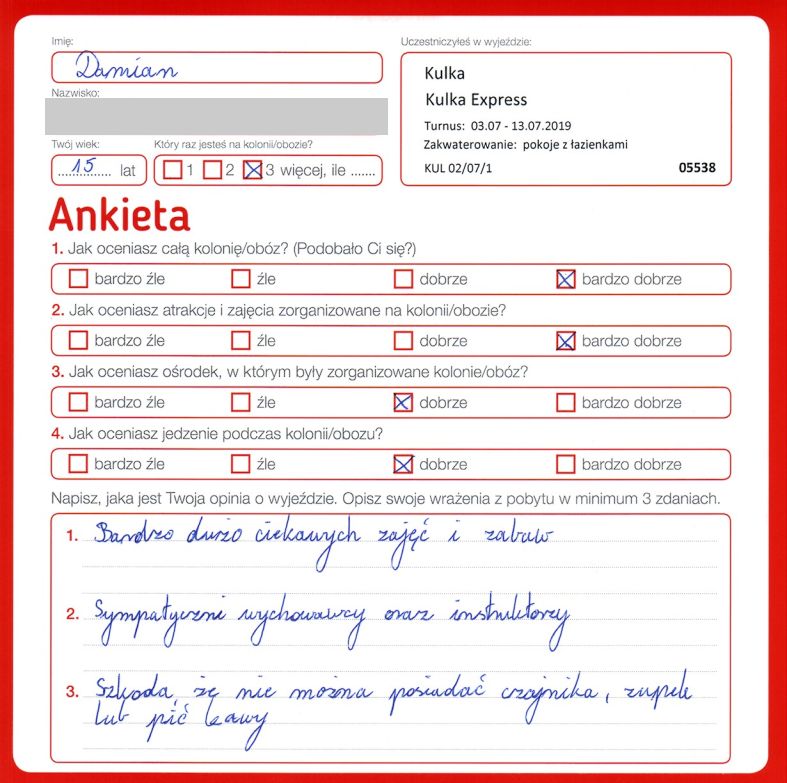 Imię:
Damian
Uczestniczyłeś w wyjeździe:
Kulka
Kulka Express
Turnus: 03.07 - 13.07.2019
Zakwaterowanie: pokoje z łazienkami
KUL 02/07/1 05538
Nazwisko:
Twój wiek:
15 lat
Który raz jesteś na kolonii/obozie?
1 2 3 więcej, ile .......
Ankieta
1. Jak oceniasz całą kolonię/obóz? (Podobało Ci się?)
bardzo źle źle dobrze bardzo dobrze
2. Jak oceniasz atrakcje i zajęcia zorganizowane na kolonii/obozie?
bardzo źle źle dobrze bardzo dobrze
3. Jak oceniasz ośrodek, w którym były zorganizowane kolonie/obóz?
bardzo źle źle dobrze bardzo dobrze
4. Jak oceniasz jedzenie podczas kolonii/obozu?
bardzo źle źle dobrze bardzo dobrze
Napisz, jaka jest Twoja opinia o wyjeździe. Opisz swoje wrażenia z pobytu w minimum 3 zdaniach.
1. Bardzo dużo ciekawych zajęć i zabaw
2. Sympatyczni wychowawcy oraz instruktorzy
3. Szkoda, że nie można posiadać czajnika, zupek
lub pić kawy